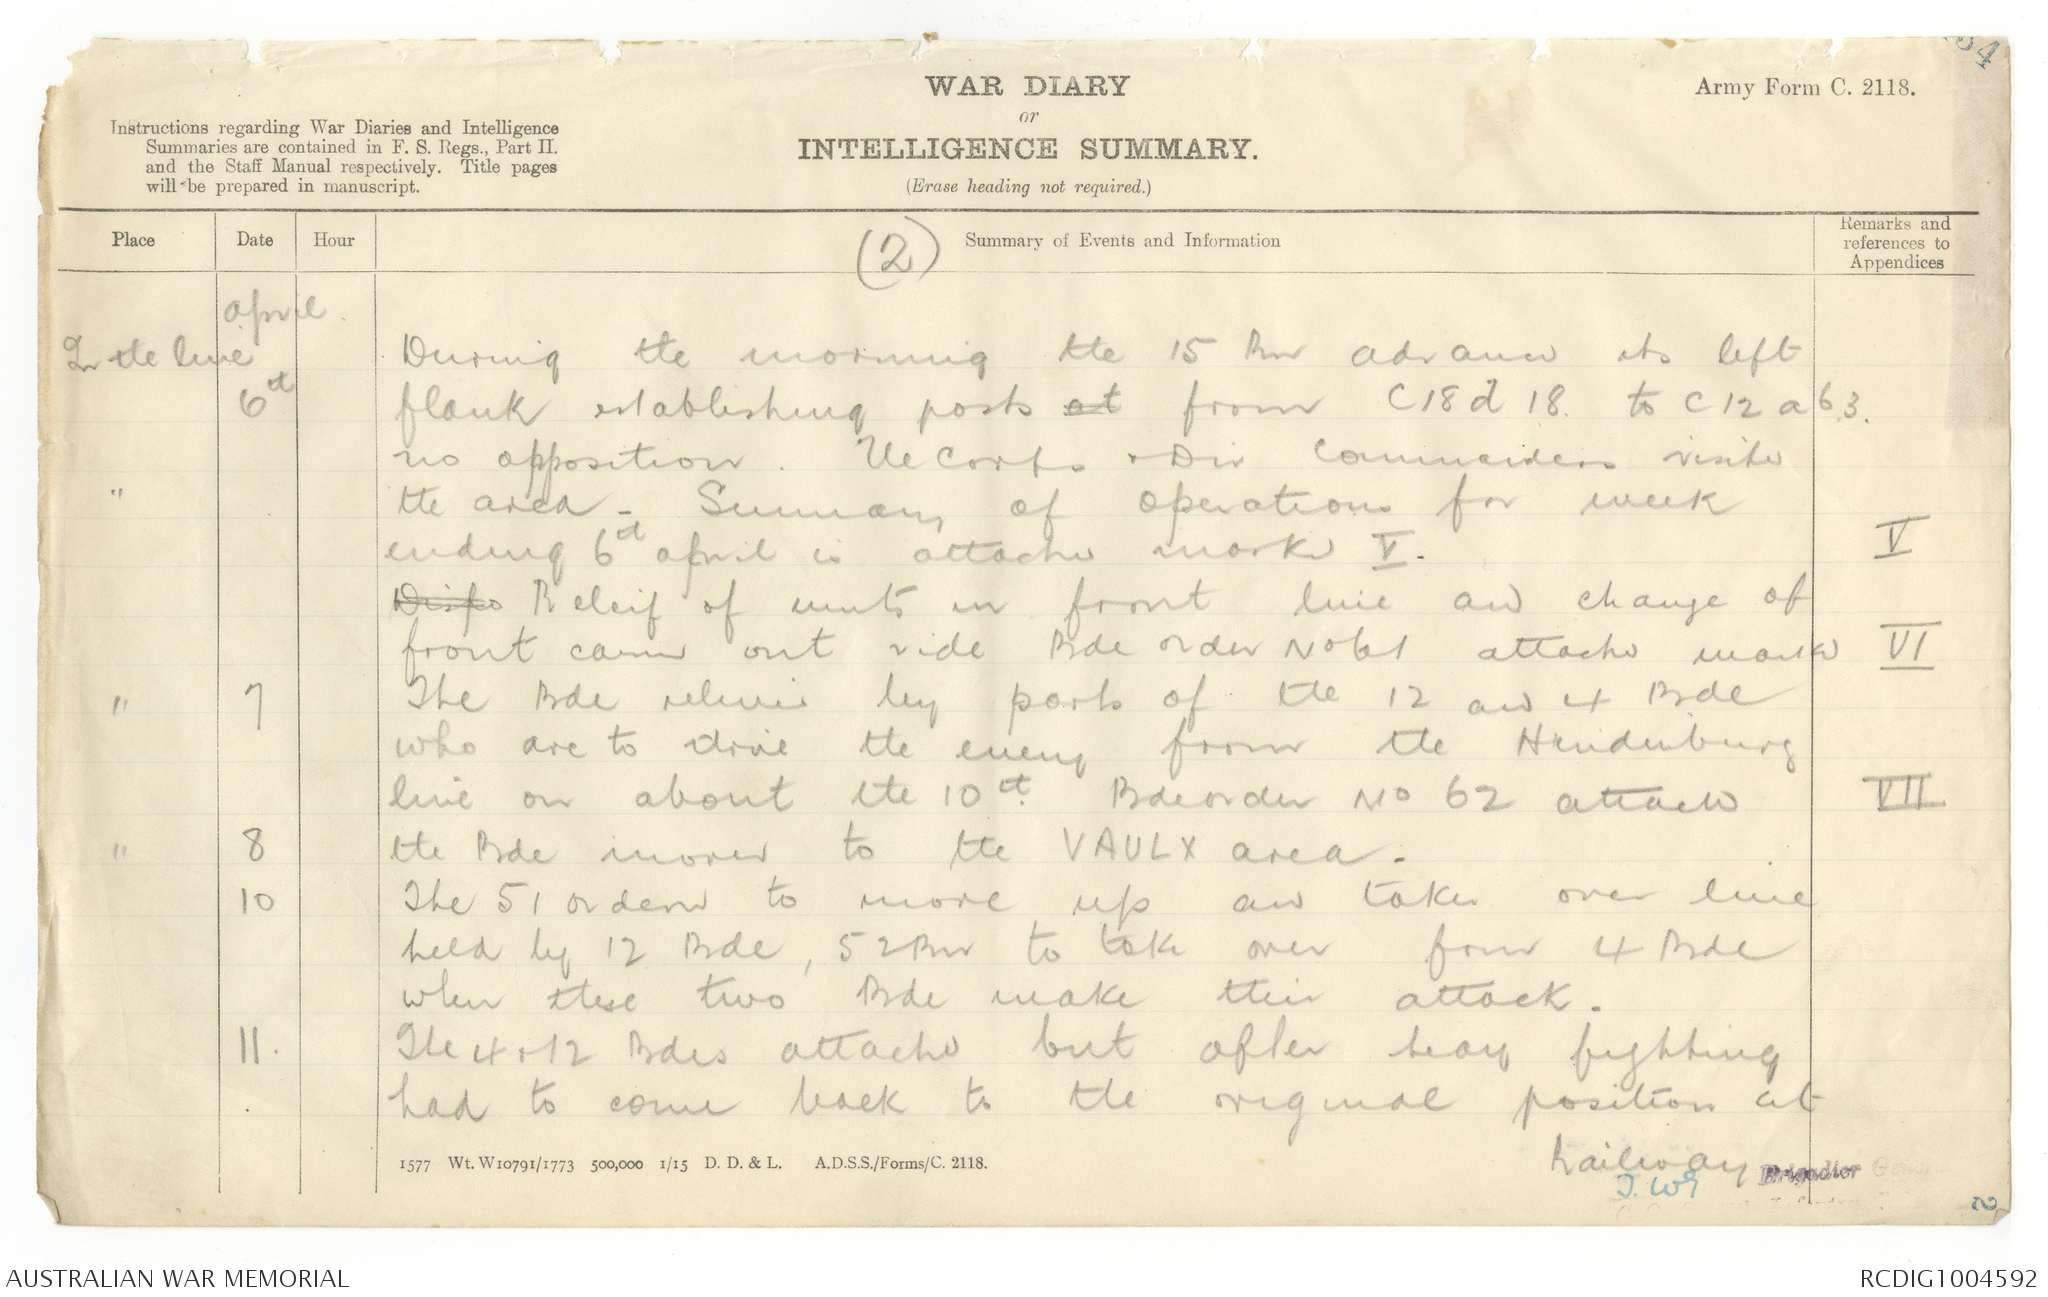 WAR DIARY
or
INTELLIGENCE SUMMARY.
(Erase heading not required.)
Army Form C. 2118.
Instructions regarding War Diaries and Intelligence
Summaries are contained in F. S. Regs., Part II.
and the Staff Manual respectively. Title pages
will be prepared in manuscript.
Place Date Hour (2) Summary of Events and Information Remarks and references to Appendices
april.
In the line During the morning the 15 Bn advance its left
6th flank establishing posts at from C18d 18. to C12a63.
no opposition. The Corps & Div Commanders visited
" the area - Summary of operations for week
ending 6th april is attached marked V. V
Dispo Releif of units in front line and change of
front carried out vide Bde order No 61 attached marked VI
" 7 The Bde relieved by parts of the 12 and 4 Bde
who are to drive the enemy from the Hindenburg
line on about the 10th. Bde order No 62 attached VII
" 8 the Bde moved to the VAULX area.
10 The 51 ordered to move up and take over line
held by 12 Bde, 52 Bn to take over from 4 Bde
when these two Bde make their attack.
11. The 4 & 12 Bdes attacked but after heavy fighting
had to come back to the original position at
Railway
Brigadier
1577 Wt. W10791/1773 500,000 1/15 D. D. & L. A.D.S.S./Forms/C. 2118.
2
AUSTRALIAN WAR MEMORIAL
RCDIG1004592